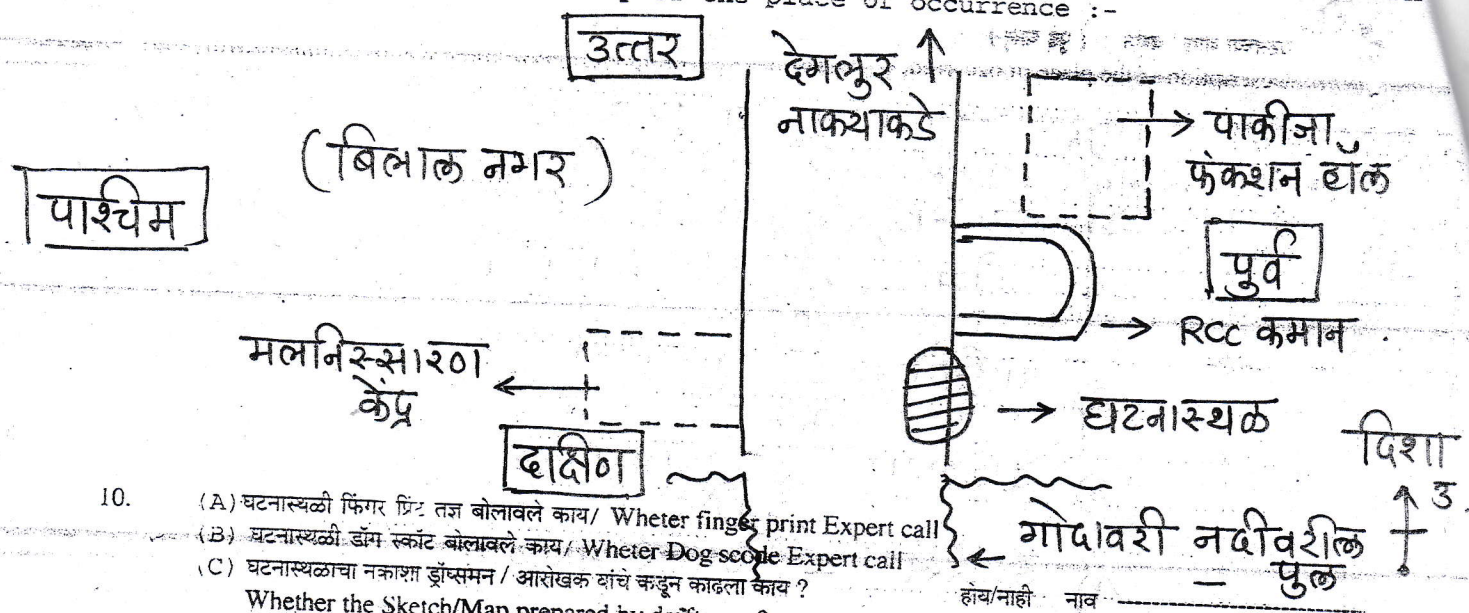 the place of occurrence :-
उत्तर
देगलुर
नाक्याकडे
पाकीजा
फंकशन हॉल
(बिलाल नगर)
पाश्चिम
पुर्व
RCC कमान
मलनिस्सारण
केंद्र
घटनास्थळ
दाक्षिण
दिशा
उ
गोदावरी नदीवरील
पुल
10. (A) घटनास्थळी फिंगर प्रिंट तज्ञ बोलावले काय/ Wheter finger print Expert call
(B) घटनास्थळी डॉग स्कॉट बोलावले काय/ Wheter Dog scode Expert call
(C) घटनास्थळाचा नकाशा ड्रॉप्समन / आरोखक यांचे कडून काढला काय ?
होय/नाही नाव
Whether the Sketch/Map prepared by